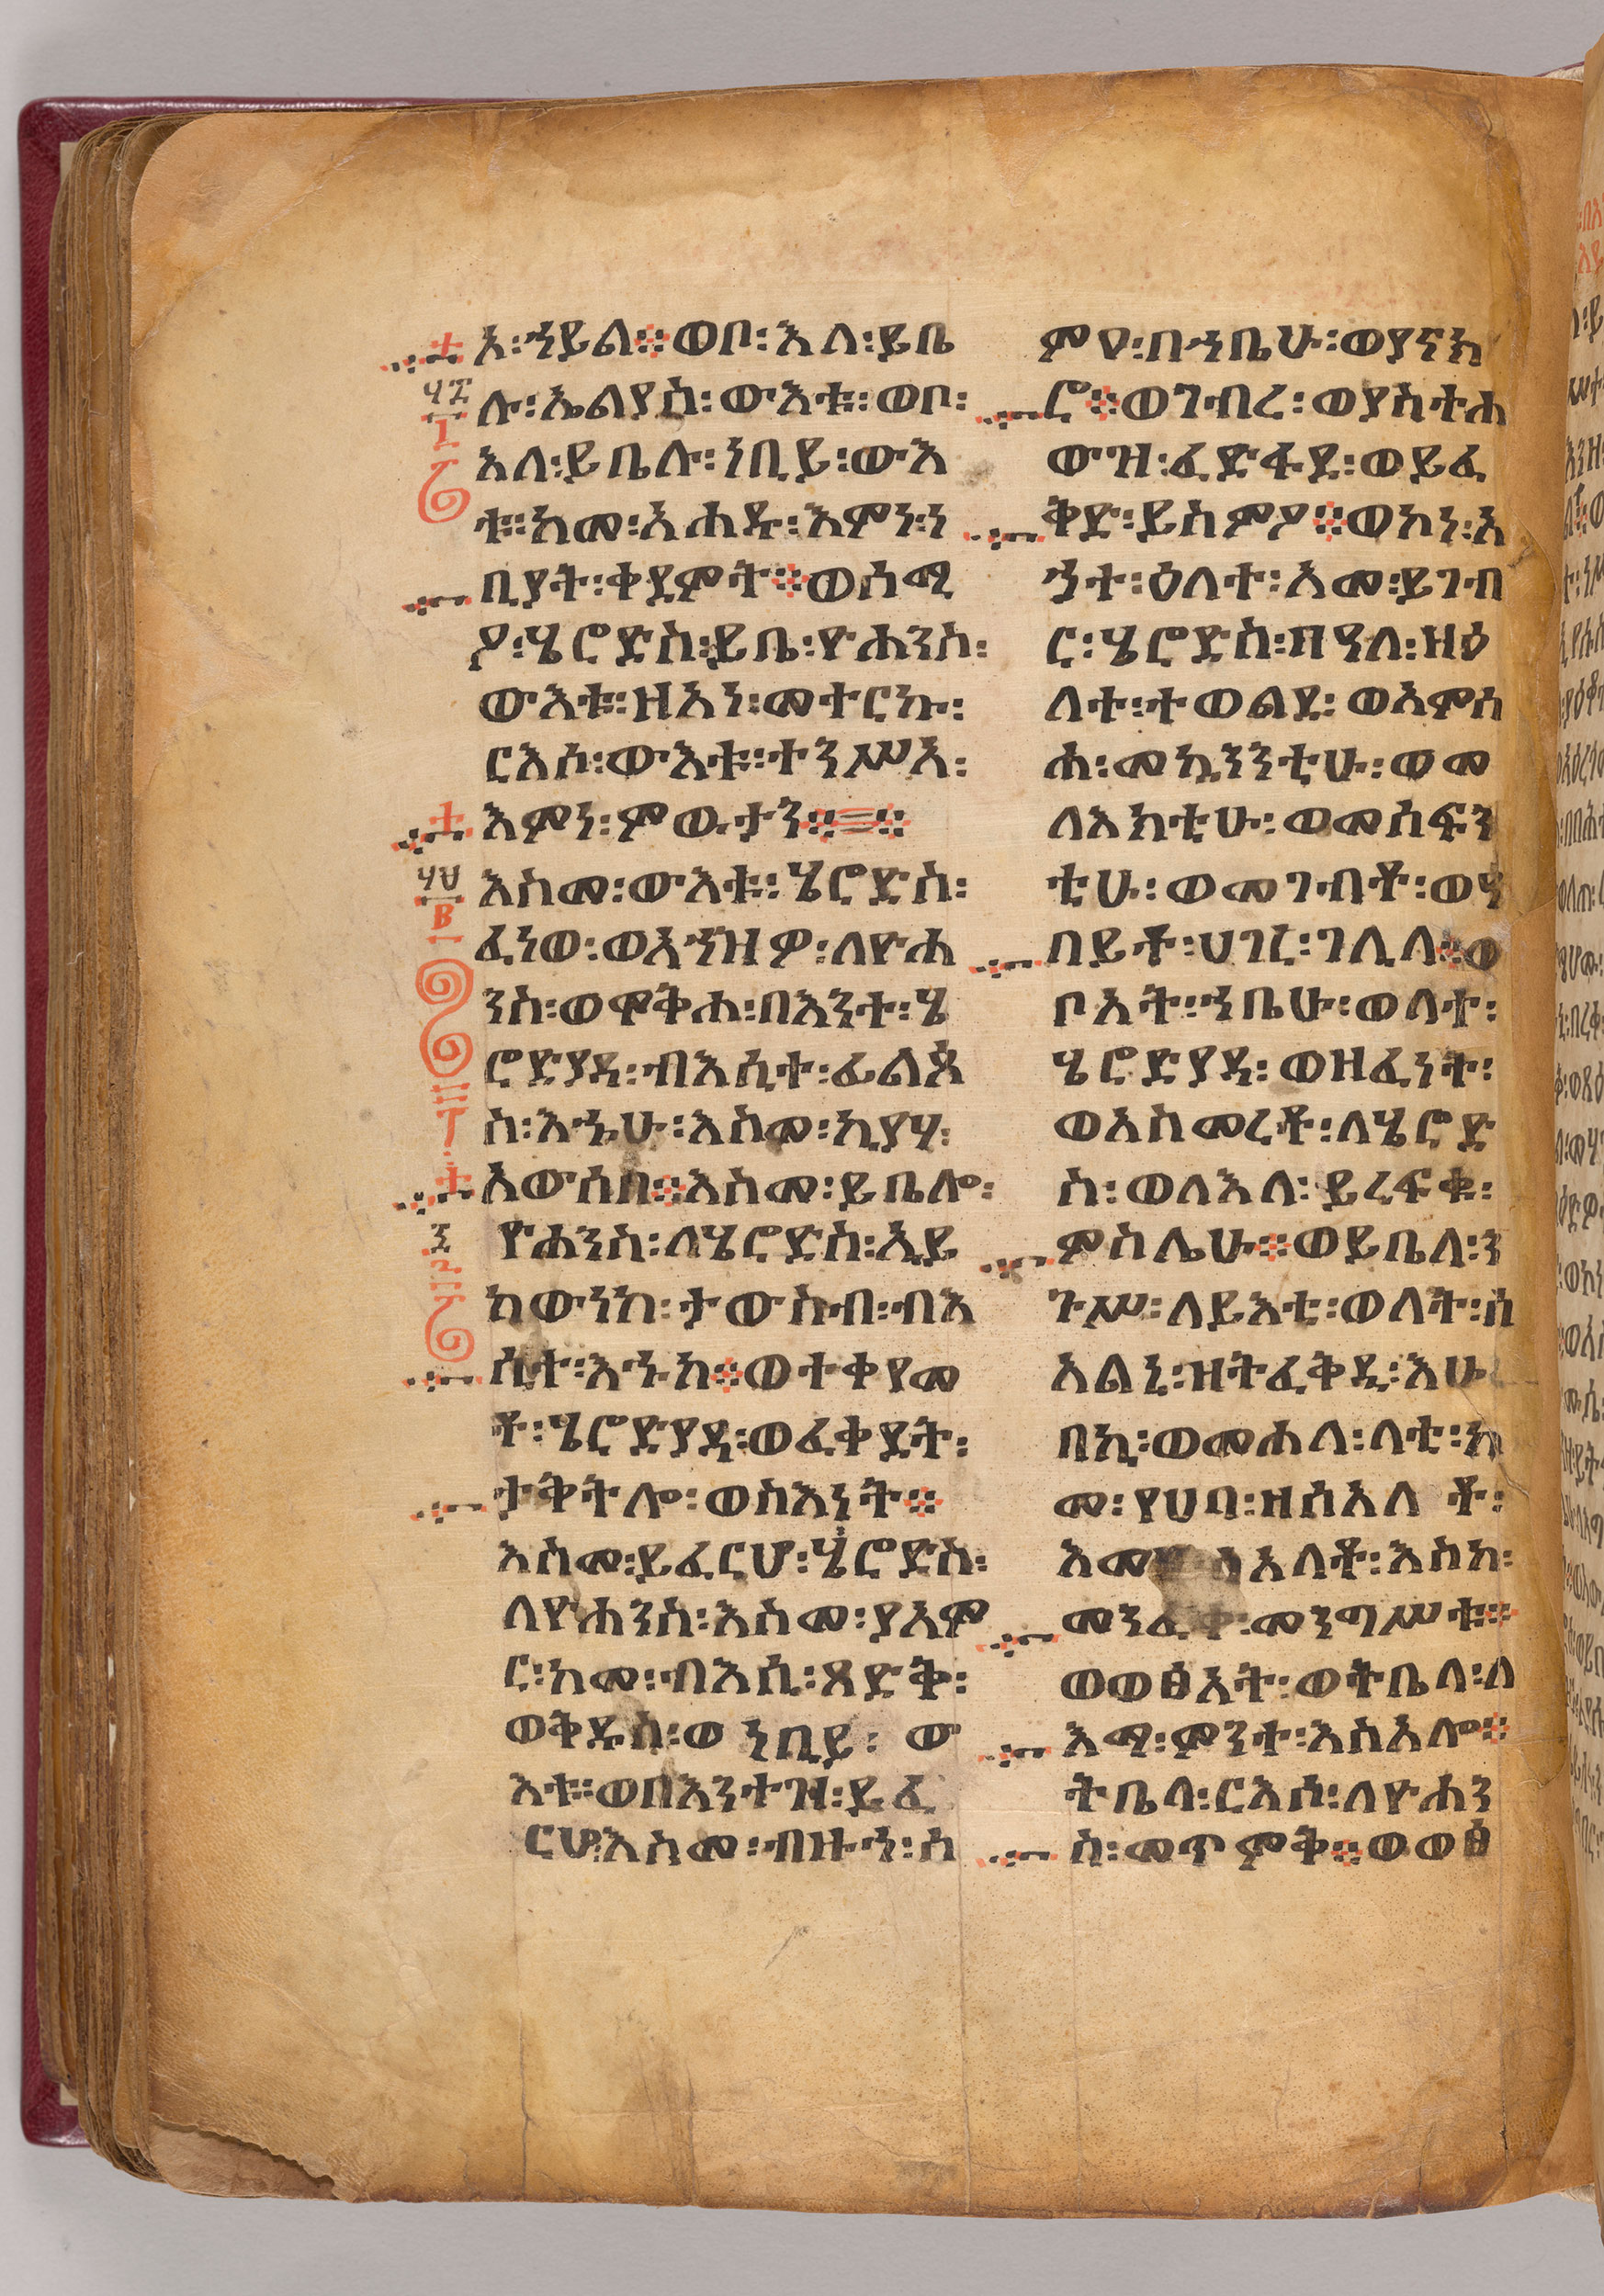 አ፡ኀይል፨ወቦ፡እለ፡ይቤ
ሉ፡ኤልያስ፡ውእቱ፡ወቦ፡
እለ፡ይቤሉ፡ነቢይ፡ውእ
ቱ፡ከመ፡አሐዱ፡እምነ፡ነ
ቢያት፡ቀደምት፨ወሰሚ
ዖ፡ሄሮድስ፡ይቤ፡ዮሐንስ፡
ውእቱ፡ዘአነ፡መተርኩ፡
ርእሶ፡ውእቱ፡ተንሥአ፡
እምነ፡ምውታን፨
እስመ፡ውእቱ፡ሄሮድስ፡
ፈነወ፡ወአኀዞ፡ለዮሐ
ንስ፡ወሞቅሐ፡በእንተ፡ሄ
ሮድያዳ፡ብእሲተ፡ፊልጶ
ስ፡እኁሁ፡እስመ፡ኪያሃ፡
አውሰበ፨እስመ፡ይቤሎ፡
ዮሐንስ፡ለሄሮድስ፡ኢይ
ከውነከ፡ታውስብ፡ብእ
ሲተ፡እኁከ፨ወተቀየመ
ቶ፡ሄሮድያዳ፡ወፈቀደት፡
ታቅትሎ፡ወስእነት፨
እስመ፡ይፈርሆ፡ሄሮድስ፡
ለዮሐንስ፡እስመ፡ያአም
ር፡ከመ፡ብእሲ፡ጻድቅ፡
ወቅዱስ፡ወ ነቢይ፡ ው
እቱ፡ወበእንተዝ፡ይፈ
ርሆ፡እስመ፡ብዙኀ፡ስ
ምዐ፡በኀቤሁ፡ወያኖክ
ሮ፨ወገብረ፡ወያስተሐ
ውዝ፡ፈድፋደ፡ወይፈ
ቅድ፡ይስምዖ፨ወኮነ፡አ
ኀተ፡ዕለተ፡አመ፡ይገብ
ር፡ሄሮድስ፡በዓለ፡ዘዕ
ለተ፡ተወልደ፡ወአምሰ
ሐ፡መኳንንቲሁ፡ወመ
ላእክቲሁ፡ወመሳፍን
ቲሁ፡ወመገብቶ፡ወዓ
በይቶ፡ሀገረ፡ገሊላ፨ወ
ቦአት፡ኀቤሁ፡ወለተ፡
ሄሮድያዳ፡ወዘፈነት፡
ወአስመረቶ፡ለሄሮድ
ስ፡ወለእለ፡ይረፍቁ፡
ምስሌሁ፨ወይቤላ፡ን
ጉሥ፡ለይእቲ፡ወለት፡ሰ
አልኒ፡ዝትፈቅዲ፡እሁ
በኪ፡ወመሐለ፡ላቲ፡ከ
መ፡የሀባ፡ዘሰአለ ቶ፡
እመሂ፡ሰአለቶ፡እስከ፡
መንፈቀ፡መንግሥቱ፨
ወወፅአት፡ወትቤላ፡ለ
እማ፡ምንተ፡እስአሎ፨
ትቤላ፡ርእሶ፡ለዮሐን
ስ፡መጥምቅ፨ወወፅ